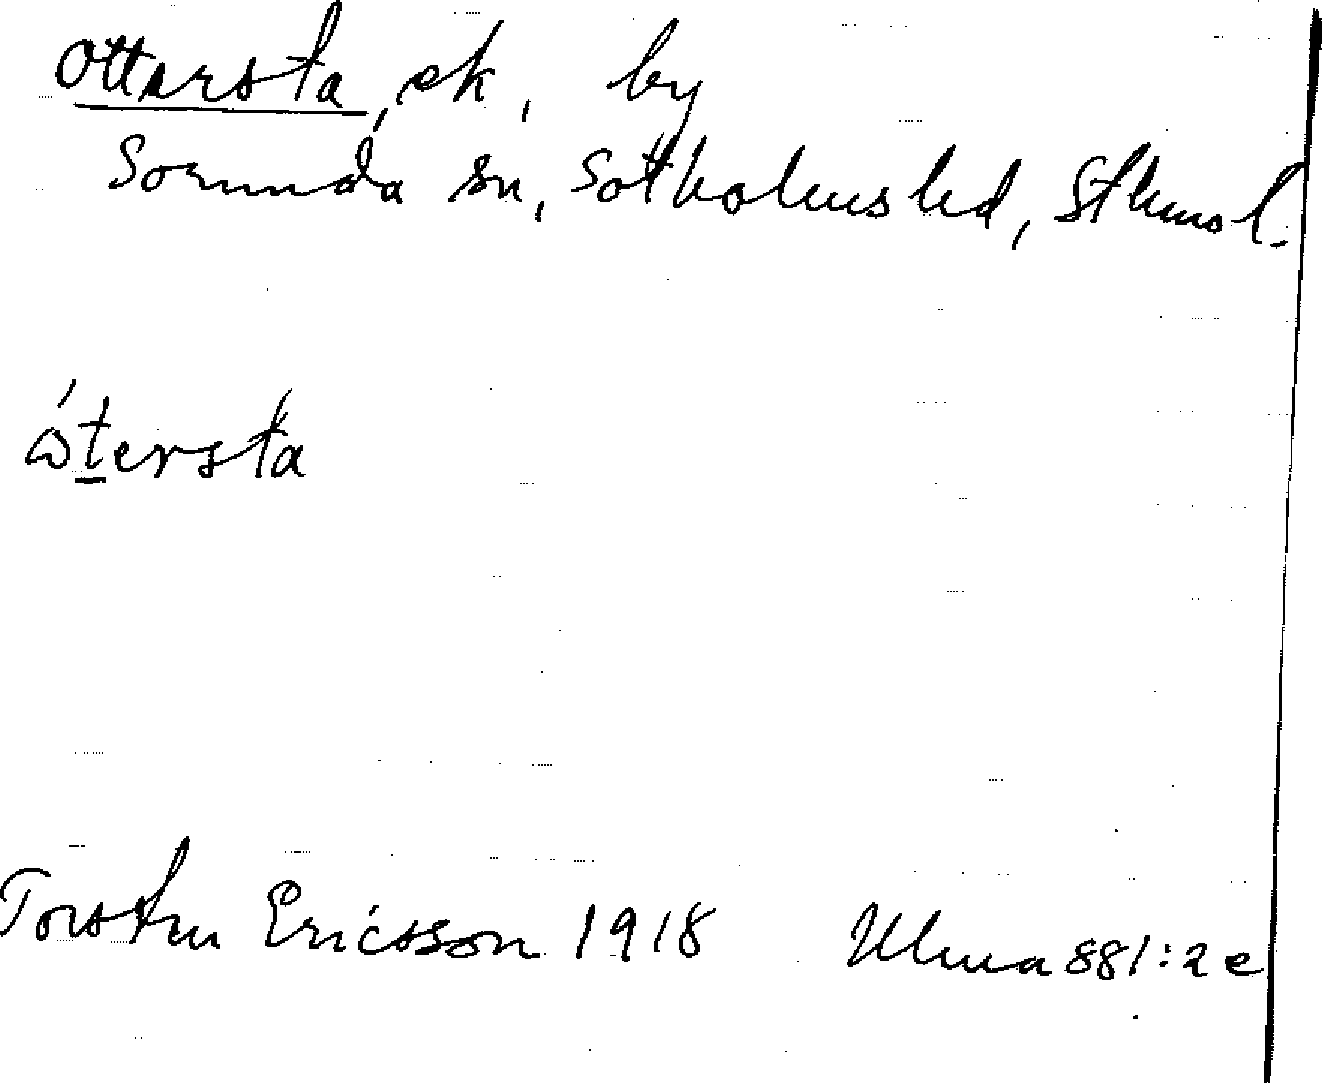 Ottersta, ek, by
Sorunda sn, Sotholms hd, Sthms l.
ótersta
Torsten Ericsson 1918 Ulma 881:2 e